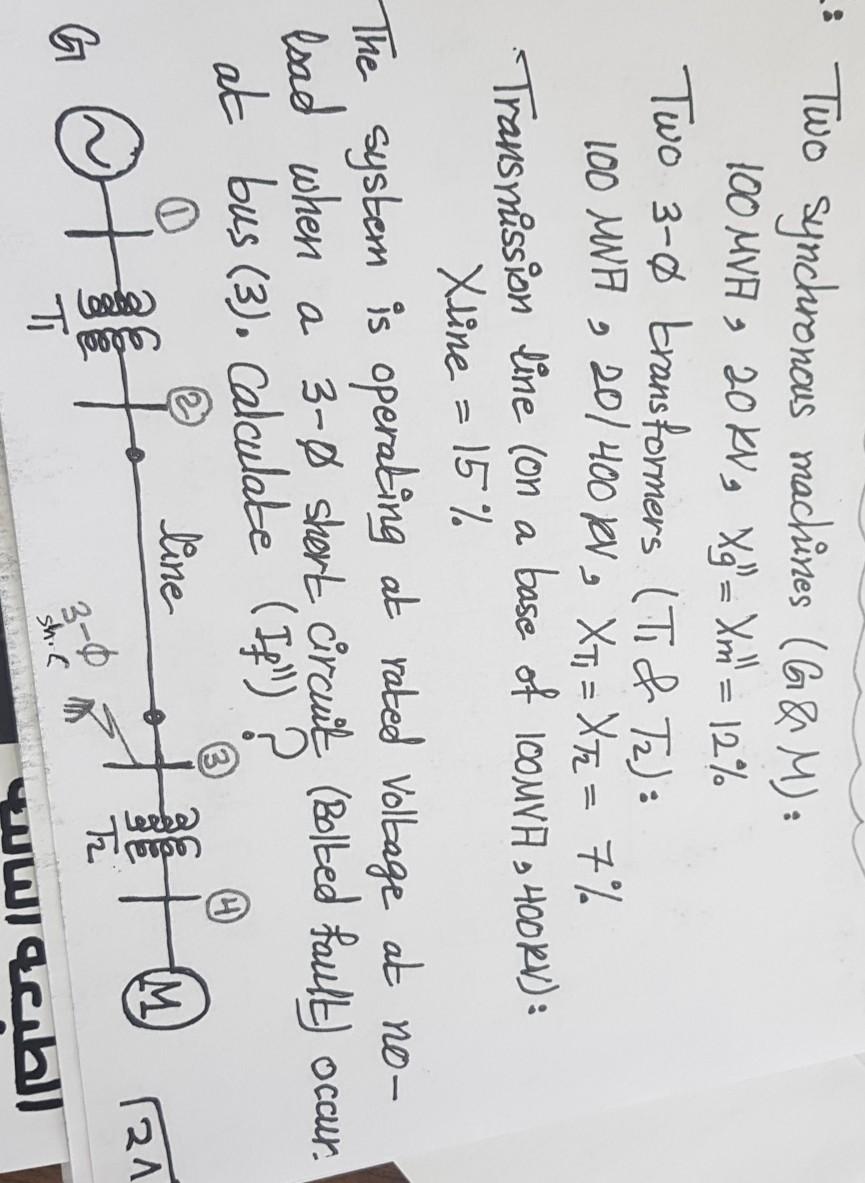 : Two synchronous machines (G & M):
100 MVA, 20 KV, Xg" = Xm" = 12%
Two 3-Ø transformers (T1 & T2):
100 MVA, 20/400 KV, XT1 = XT2 = 7%
Transmission line (on a base of 100MVA, 400KV):
Xline = 15%
The system is operating at rated voltage at no-
load when a 3-Ø short circuit (Bolted fault) occur.
at bus (3). Calculate (If")?
① ② line ③ ④
G T1 3-Ø sh.c T2 M
21